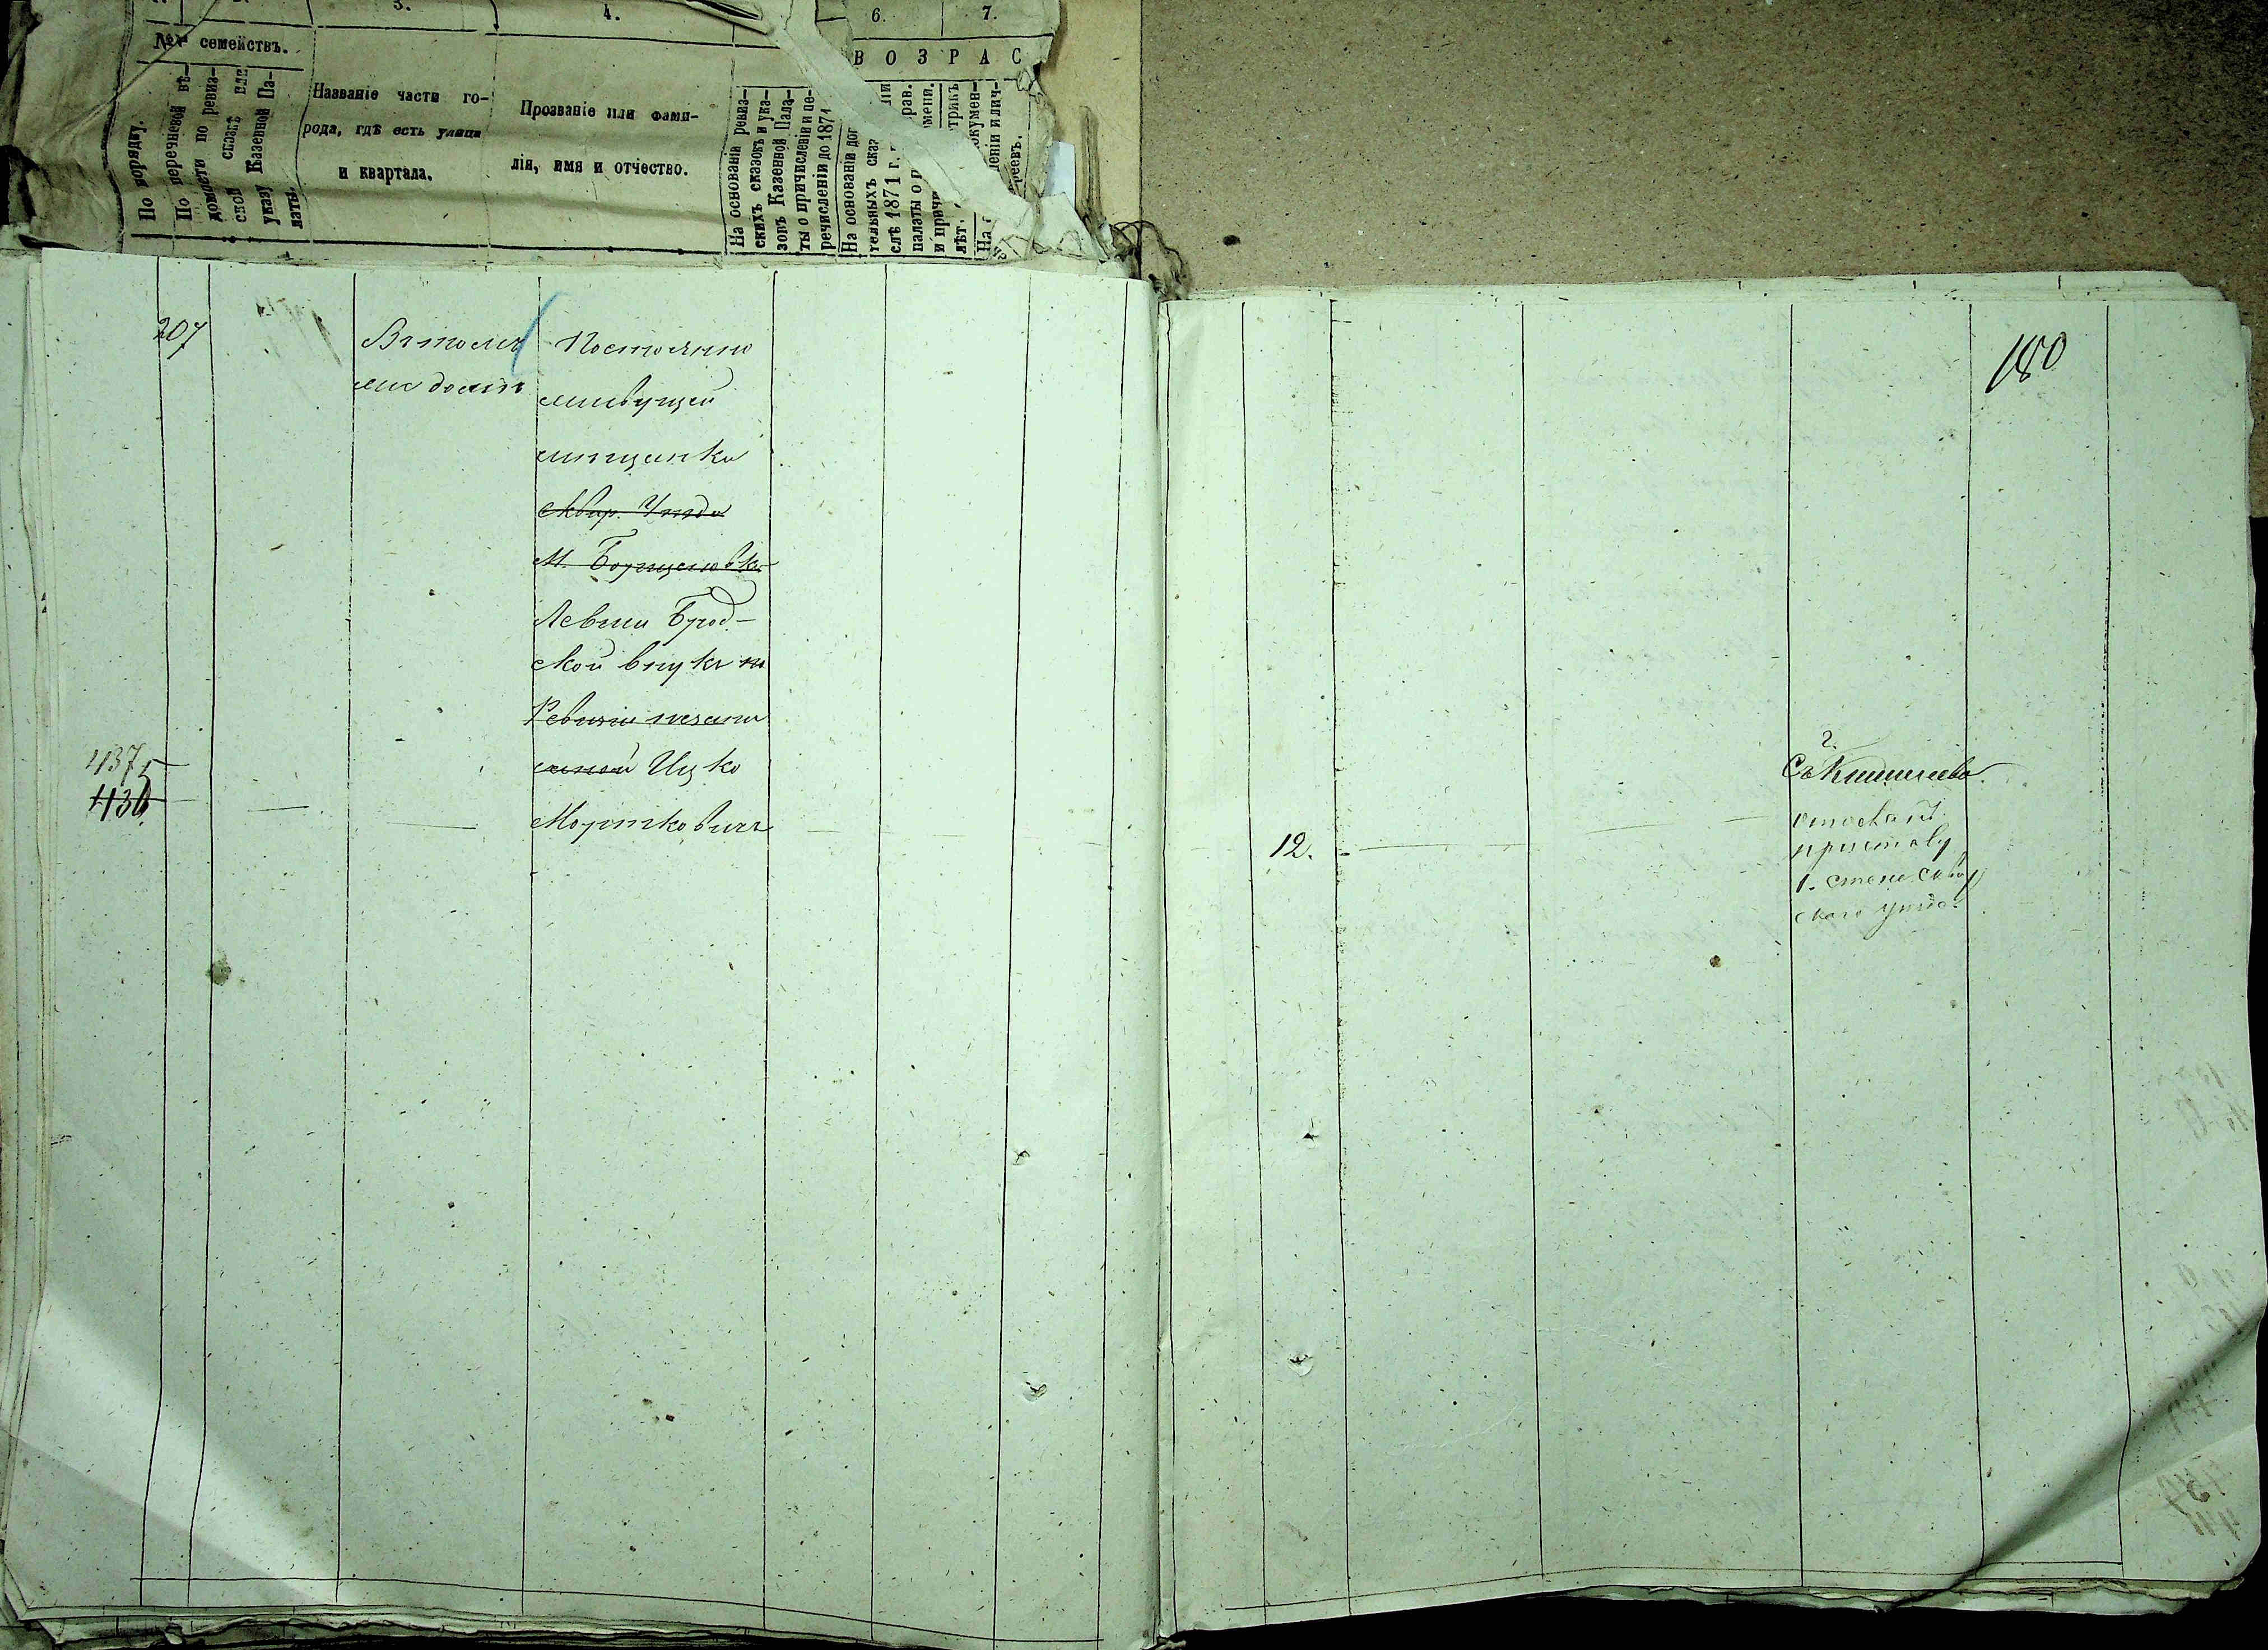 3.
4.
6.
7.
№№ семействъ.
По порядку.
По перечневой вѣ-
домости по ревиз-
ской сказкѣ или
указу Казенной Па-
латы.
Названіе части го-
рода, гдѣ есть улица
и квартала.
Прозваніе или фами-
лія, имя и отчество.
На основаніи ревиз-
скихъ сказокъ и ука-
зовъ Казенной Пала-
ты о причисленіи и пе-
речисленіи до 1871
ВОЗРАС
На основаніи доп
тельныхъ сказ
слѣ 1871 г.
палаты о п
и причи
лѣт.
На
207
Въ томъ
же домѣ
Постоянно
живущей
мѣщанки
Сквир. Уѣзда
М. Борщаговка
Левии Брод-
ской внукъ по
Ревизіи незапи
санной Ицко
Мортковичъ
437
436
12.
180
г.
Съ Кишинева
отосланъ
приставу
1. стана Сквир
скаго уѣзда